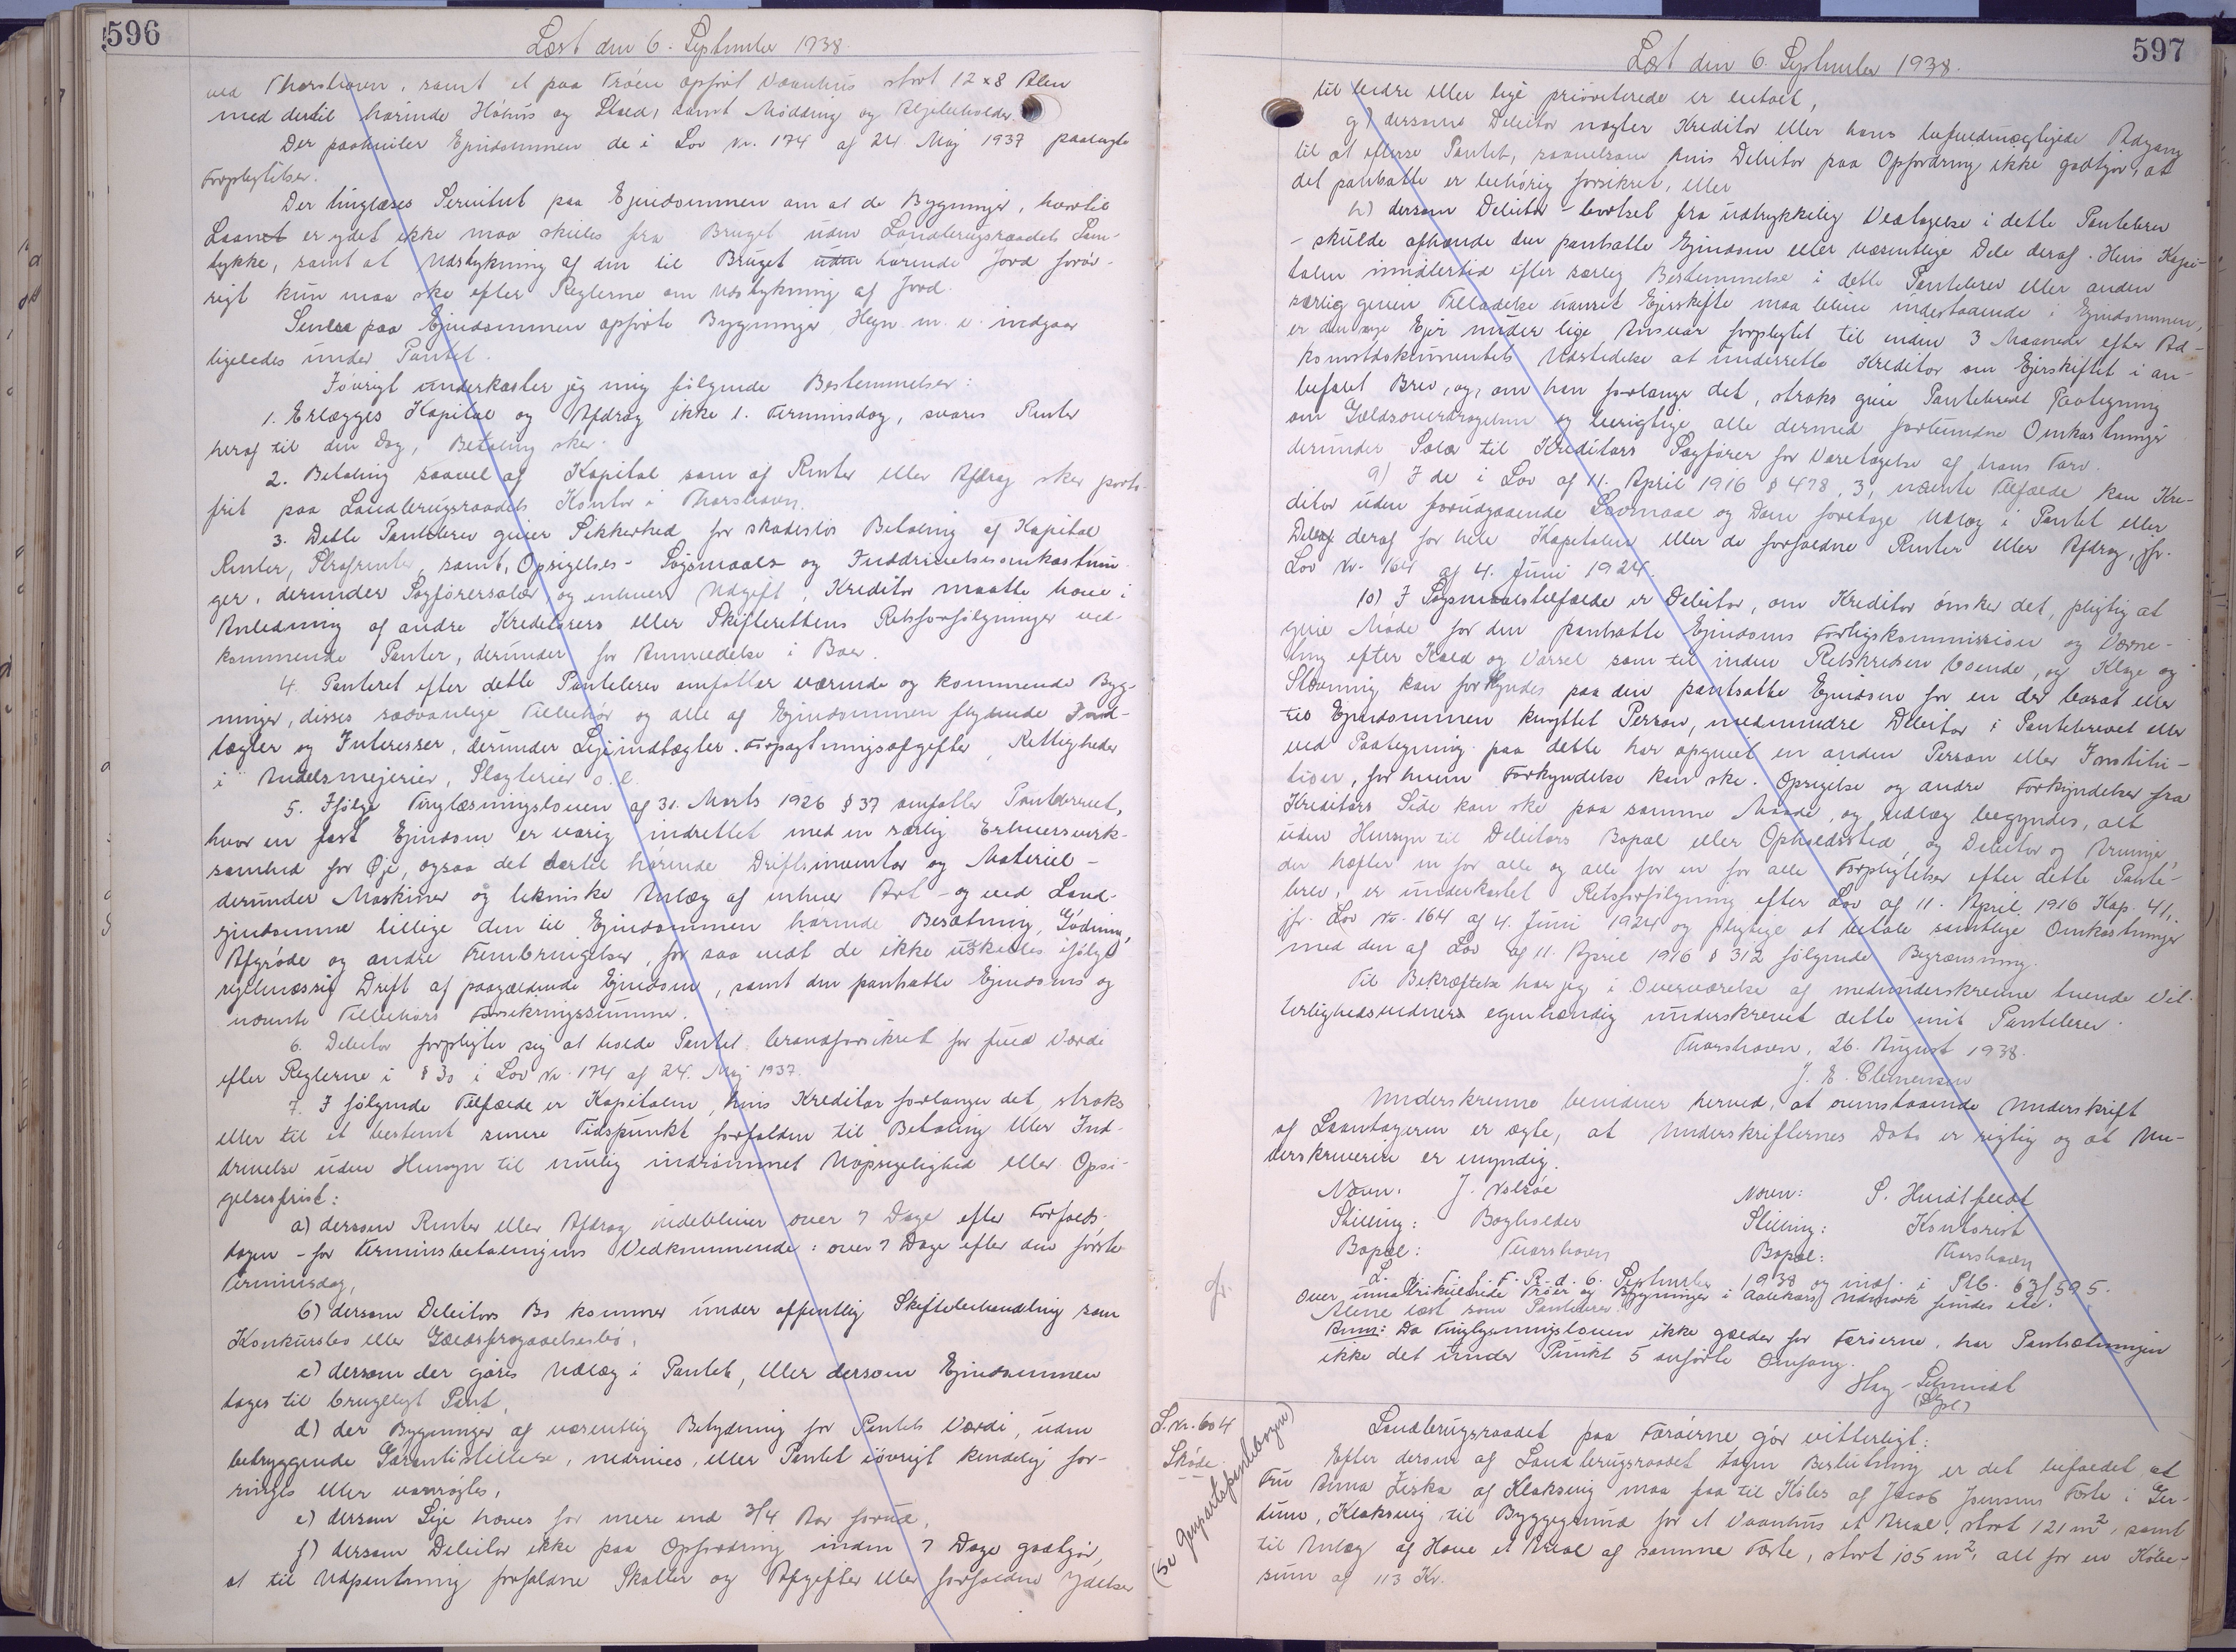 596
Læst den 6. September 1938.
ved Thorshavn, samt et paa Trøen opført Vaanhus stort 12 x 8 Alen
med dertil hørende Høhus og Stald, samt Mødding og Ajlebeholder.
Der paahviler Ejendommen de i Lov Nr. 174 af 24 Maj 1937 paalagte
Forpligtelser.
Der tinglæses Servitut paa Ejendommen om at de Bygninger, hvortil
Laanet er ydet ikke maa skilles fra Bruget uden Landbrugsraadets Sam-
tykke, samt at Udstykning af den til Bruget uden hørende Jord forøv-
rigt kun maa ske efter Reglerne om Udstykning af Jord.
Senere paa Ejendommen opførte Bygninger, Hegn m. v. indgaar
ligeledes under Pantet.
Iøvrigt underkaster jeg mig følgende Bestemmelser:
1. Erlægges Kapital og Afdrag ikke 1. Terminsdag, svares Renter
heraf til den Dag, Betaling sker.
2. Betaling saavel af Kapital som af Renter eller Afdrag sker porto-
frit paa Landbrugsraadets Kontor i Thorshavn.
3. Dette Pantebrev giver Sikkerhed for skadesløs Betaling af Kapital
Renter, Strafrenter, samt Opsigelses- Søgsmaals og Inddrivelsesomkostnin-
ger, derunder Sagførersalær, og enhver Udgift, Kreditor maatte have i
Anledning af andre Kreditorers eller Skifterettens Retsforfølgninger ved-
kommende Panter, derunder for Anmeldelse i Boer.
4. Panteret efter dette Pantebrev omfatter værende og kommende Byg-
ninger, disses sædvanlige Tilbehør og alle af Ejendommen flydende Ind-
tægter og Interesser, derunder Lejeindtægter. Forpagtningsafgifter, Rettigheder
i Andelsmejerier, Slagterier o. l.
5. Ifølge Tinglæsningsloven af 31. Marts 1926 § 37 omfatter Pantebrevet,
hvor en fast Ejendom er varig indrettet med en særlig Erhvervsvirk-
somhed for Øje, ogsaa det dertil hørende Driftsinventar og Materiel -
derunder Maskiner og tekniske Anlæg af enhver Art - og ved Land-
ejendomme tillige den til Ejendommen hørende Besætning, Gødning,
Afgrøde og andre Frembringelser, for saa vidt de ikke udskilles ifølge
regelmæssig Drift af paagældende Ejendom, samt den pantsatte Ejendoms og
nævnte Tilbehørs Forsikringssummer.
6. Debitor forpligter sig at holde Pantet brandforsikret for fuld Værdi
efter Reglerne i § 30 i Lov Nr. 174 af 24. Maj 1937.
7. I følgende Tilfælde er Kapitalen, hvis Kreditor forlanger det, straks
eller til et bestemt senere Tidspunkt forfalden til Betaling eller Ind-
drivelse uden Hensyn til mulig indrømmet Uopsigelighed eller Opsi-
gelsesfrist:
a) dersom Renter eller Afdrag udebliver over 7 Dage efter Forfalds-
dagen - for Terminsbetalingens Vedkommende: over 7 Dage efter den første
Terminsdag,
b) dersom Debitors Bo kommer under offentlig Skiftebehandling som
Konkursbo eller Gældsfragaaelsesbo,
c) dersom der gøres Udlæg i Pantet, eller dersom Ejendommen
tages til brugeligt Pant,
d) der Bygninger af væsentlig Betydning for Pantets Værdi, uden
betryggende Garantistillelse, nedrives, eller Pantet iøvrigt kendelig for-
ringes eller vanrøgtes,
e) dersom Leje hæves for mere end 3/4 Aar forud,
f) dersom Debitor ikke paa Opfordring inden 7 Dage godtgør,
at til Udpantning forfaldne Skatter og Afgifter eller forfaldne Ydelser
597
Læst den 6. September 1938.
til bedre eller lige prioriterede er betalt,
g) dersom Debitor nægter Kreditor eller hans befuldmægtigede Adgang
til at efterse Pantet, saavelsom hvis Debitor paa Opfordring ikke godtgør, at
det pantsatte er behørig forsikret, eller
h) dersom Debitor - bortset fra udtrykkelig Vedtagelse i dette Pantebrev
- skulde afhænde den pantsatte Ejendom eller væsentlige Dele deraf. Hvis Kapi-
talen imidlertid efter særlig Bestemmelse i dette Pantebrev eller anden
særlig given Tilladelse uanset Ejerskifte maa blive indestaaende i Ejendommen,
er den nye Ejer under lige Ansvar forpligtet til inden 3 Maaneder efter Ad-
komstdokumentets Udstedelse at underrette Kreditor om Ejerskiftet i an-
befalet Brev, og, om han forlanger det, straks give Pantebrevet Paategning
om Gældsovertagelsen og berigtige alle dermed forbundne Omkostninger
derunder Salær til Kreditors Sagfører for Varetagelse af hans Tarv.
9) I de i Lov af 11. April 1916 § 478, 3, nævnte Tilfælde kan Kre-
ditor uden forudgaaende Lovmaal og Dom foretage Udlæg i Pantet eller
Delen deraf for hele Kapitalen eller de forfaldne Renter eller Afdrag, jfr.
Lov Nr. 164 af 4. Juni 1924.
10) I Søgsmaalstilfælde er Debitor, om Kreditor ønsker det, pligtig at
give Møde for den pantsatte Ejendoms Forligskommission og Værne-
ting efter Kald og Varsel som til inden Retskredsen boende, og Klage og
Stævning kan forkyndes paa den pantsatte Ejendom for en der bosat eller
til Ejendommen knyttet Person, medmindre Debitor i Pantebrevet eller
ved Paategning paa dette har opgivet en anden Person eller Institu-
tion, for hvem Forkyndelse kan ske. Opsigelse og andre Forkyndelser fra
Kreditors Side kan ske paa samme Maade, og Udlæg begyndes, alt
uden Hensyn til Debitors Bopæl eller Opholdssted, og Debitor og Arvinger,
der hæfter en for alle og alle for en for alle Forpligtelser efter dette Pante-
brev, er underkastet Retsforfølgning efter Lov af 11. April 1916 Kap. 41,
jfr. Lov Nr. 164 af 4. Juni 1924 og pligtige at betale samtlige Omkostninger
med den af Lov af 11. April 1916 § 312 følgende Begrænsning.
Til Bekræftelse har jeg i Overværelse af medunderskrevne tvende Vit-
terlighedsvidner egenhændig underskrevet dette mit Pantebrev.
Thorshavn, 26. August 1938.
J. E. Clemensen
Underskrevne bevidner herved, at ovenstaaende Underskrift
af Laantageren er ægte, at Underskrifternes Dato er rigtig og at Un-
derskriveren er myndig.
Navn: J. Nolsøe Navn: S. Hvidtfeldt
Stilling: Bogholder Stilling: Kontorist
Bopæl: Thorshavn Bopæl: Thorshavn
L. i. T. f. F. R. d. 6. September 1938 og indf. i Stb. 63/595.
Over umatrikulerede Trøer og Bygninger i Udmark findes ikke.
Alene læst som Pantebrev.
Anm: Da Tinglysningsloven ikke gælder for Færøerne, har Pantsætningen
ikke det under Punkt 5 anførte Omfang.
Hey-Schmidt
S. Nr. 604
Skøde
(se Genpartspantebogen)
Landbrugsraadet paa Færøerne gør vitterligt:
Efter derom af Landbrugsraadet tagen Beslutning er det befalet, at
Fru Anna Ziska af Klaksvig maa faa til Købs af Jacob Joensens Fæste i Ger-
dum, Klaksvig til Byggegrund for et Vaanhus et Areal, stort 121 m², samt
til Anlæg af Have et Areal af samme Fæste, stort 105 m², alt for en Købe-
sum af 113 Kr.